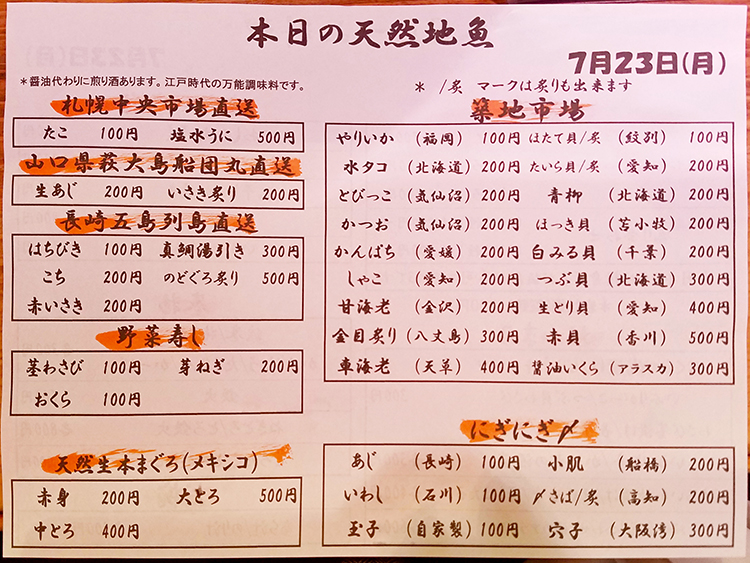 本日の天然地魚
7月23日(月)
*醤油代わりに煎り酒あります。江戸時代の万能調味料です。
* /炙 マークは炙りも出来ます
札幌中央市場直送
たこ 100円 塩水うに 500円
山口県萩大島船団丸直送
生あじ 200円 いさき炙り 200円
長崎五島列島直送
はちびき 100円 真鯛湯引き 300円
こち 200円 のどぐろ炙り 500円
赤いさき 200円
野菜寿し
茎わさび 100円 芽ねぎ 200円
おくら 100円
天然生本まぐろ(メキシコ)
赤身 200円 大とろ 500円
中とろ 400円
築地市場
やりいか (福岡) 100円 ほたて貝/炙 (紋別) 100円
水タコ (北海道) 200円 たいら貝/炙 (愛知) 200円
とびっこ (気仙沼) 200円 青柳 (北海道) 200円
かつお (気仙沼) 200円 ほっき貝 (苫小牧) 200円
かんぱち (愛媛) 200円 白みる貝 (千葉) 200円
しゃこ (愛知) 200円 つぶ貝 (北海道) 300円
甘海老 (金沢) 200円 生とり貝 (愛知) 400円
金目炙り (八丈島) 300円 赤貝 (香川) 500円
車海老 (天草) 400円 醤油いくら (アラスカ) 300円
にぎにぎ〆
あじ (長崎) 100円 小肌 (船橋) 200円
いわし (石川) 100円 〆さば/炙 (高知) 200円
玉子 (自家製) 100円 穴子 (大阪湾) 300円